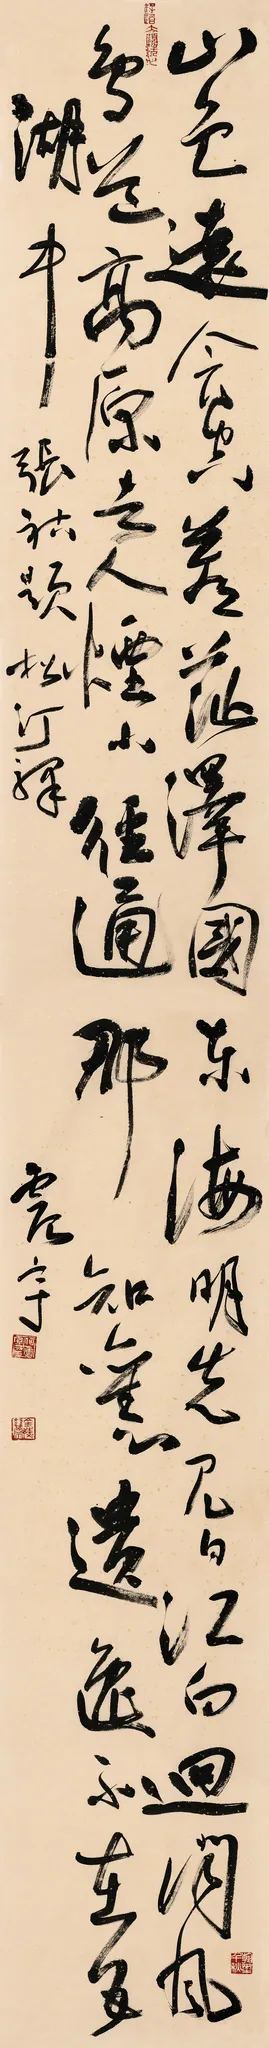 山色遠含空蒼茫澤國東海明先見日江白迴聞風
鳥道高原去人煙小徑通那知舊遺逸不在五
湖中
張祜題松汀驛